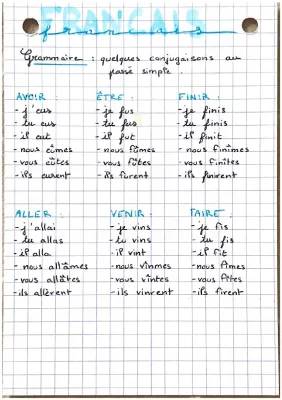 FRANÇAIS
français
Grammaire : quelques conjugaisons au
passé simple.
AVOIR :
- j'eus
- tu eus
- il eut
- nous eûmes
- vous eûtes
- ils eurent
ÊTRE :
- je fus
- tu fus
- il fut
- nous fûmes
- vous fûtes
- ils furent
FINIR :
- je finis
- tu finis
- il finit
- nous finîmes
- vous finîtes
- ils finirent
ALLER :
- j'allai
- tu allas
- il alla
- nous allâmes
- vous allâtes
- ils allèrent
VENIR :
- je vins
- tu vins
- il vint
- nous vînmes
- vous vîntes
- ils vinrent
FAIRE :
- je fis
- tu fis
- il fit
- nous fîmes
- vous fîtes
- ils firent